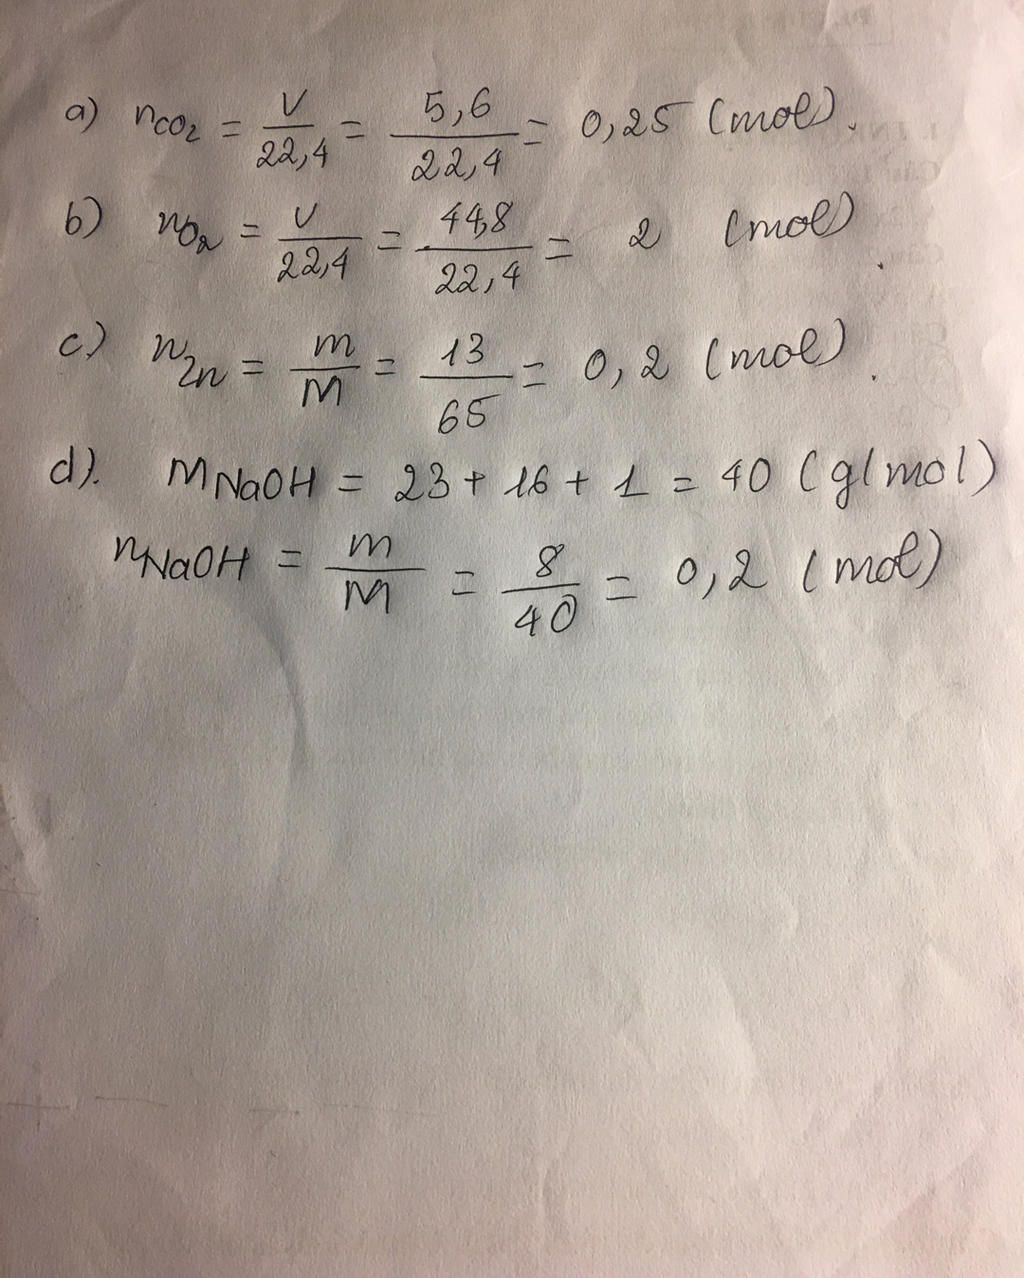 a) nCO2 = V/22,4 = 5,6/22,4 = 0,25 (mol).
b) nO2 = V/22,4 = 44,8/22,4 = 2 (mol).
c) nZn = m/M = 13/65 = 0,2 (mol).
d). MNaOH = 23 + 16 + 1 = 40 (g/mol)
nNaOH = m/M = 8/40 = 0,2 (mol)